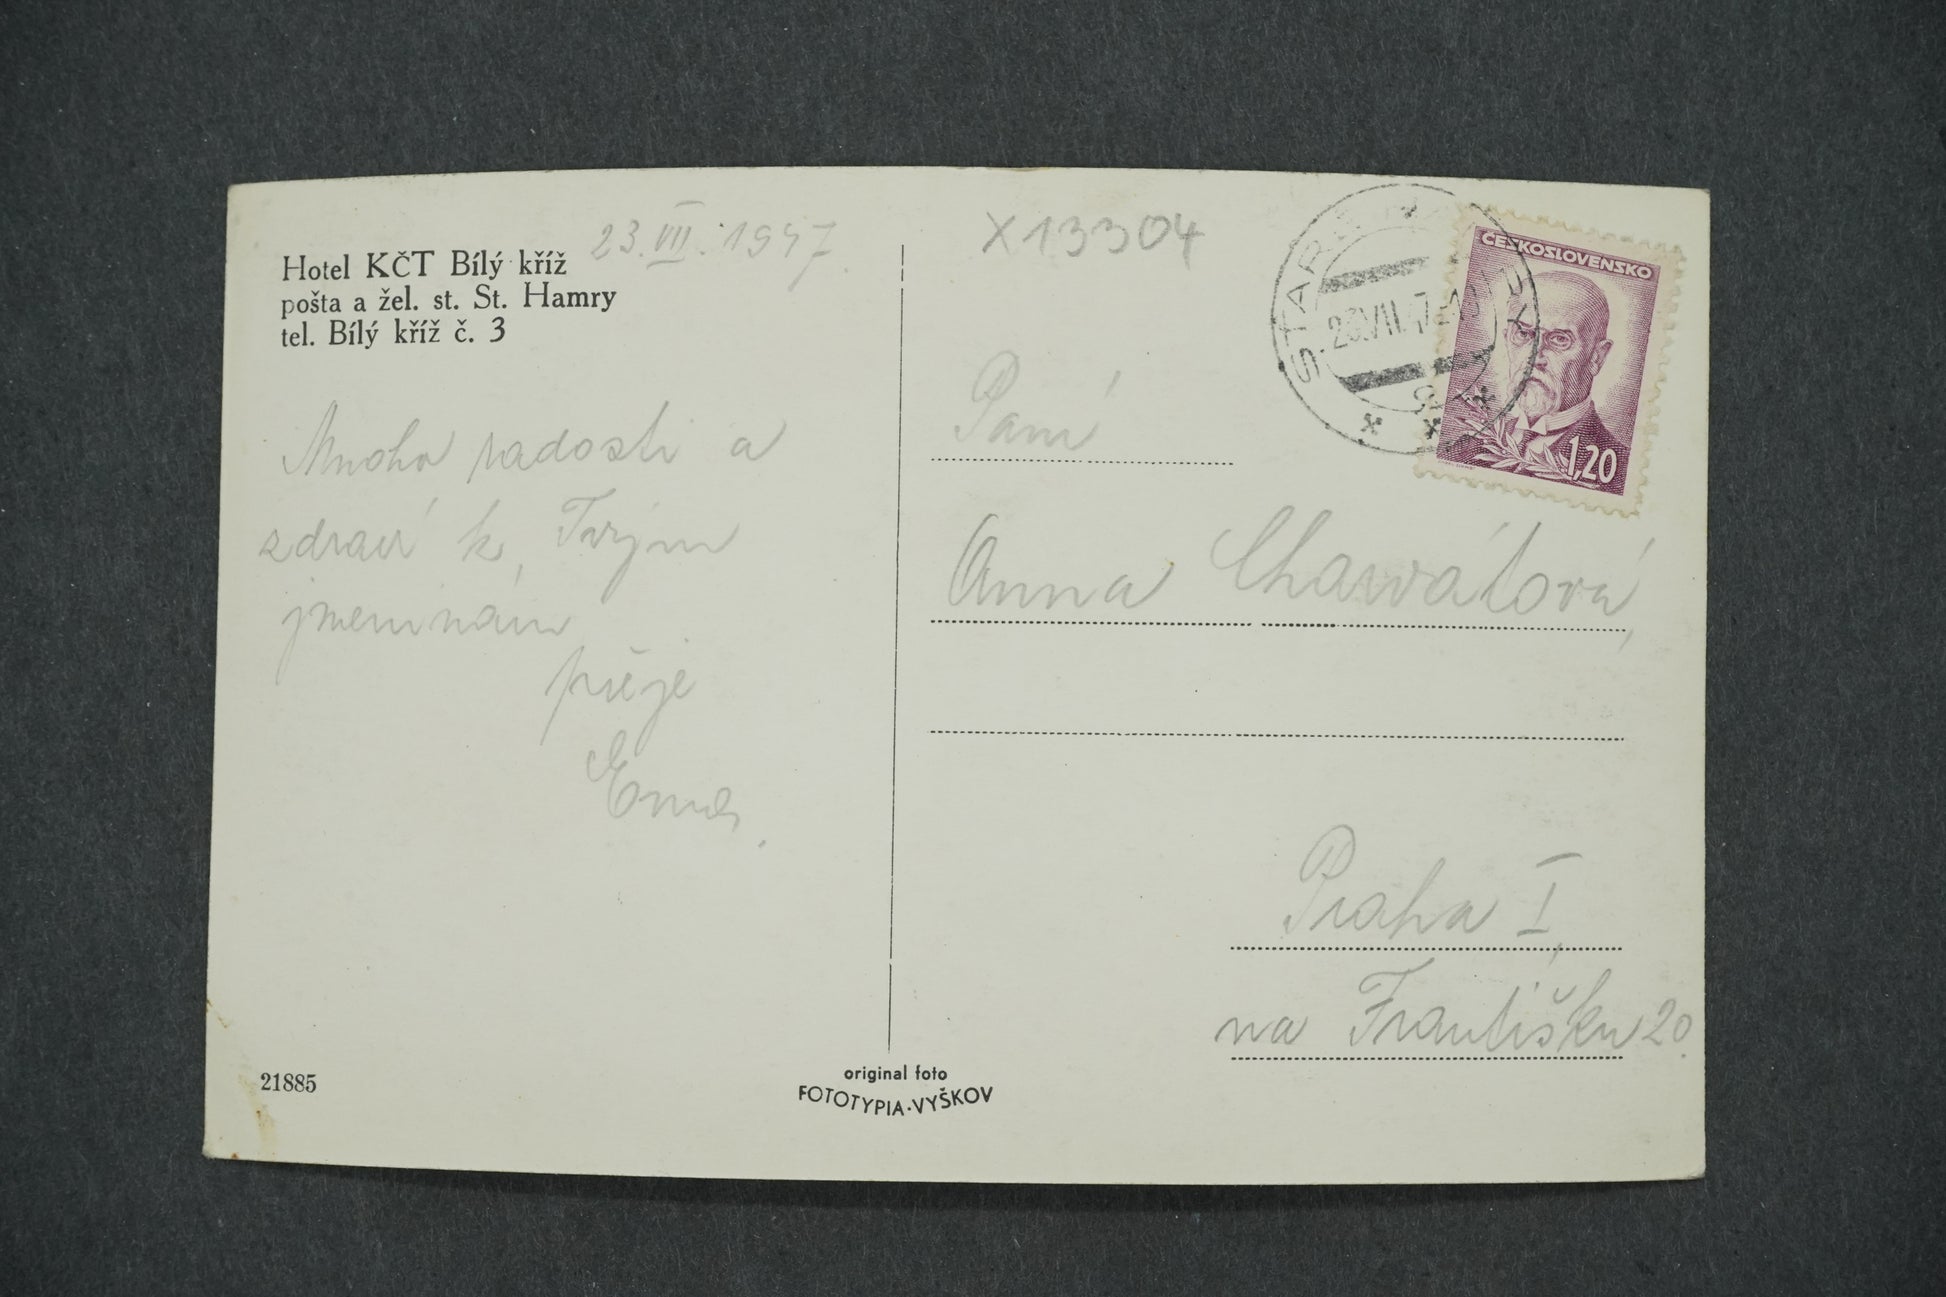 23.VII.1947.
Hotel KČT Bílý kříž
pošta a žel. st. St. Hamry
tel. Bílý kříž č. 3
Mnoho radosti a
zdraví k Tvým
jmeninám
přeje
Ema.
21885
original foto
FOTOTYPIA·VYŠKOV
X13304
ČESKOSLOVENSKO
1,20
Paní
Anna Charvátová,
Praha I,
na Františku 20.